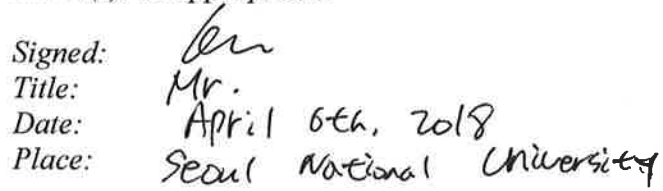 Signed:
Title: Mr.
Date: April 6th, 2018
Place: Seoul National University